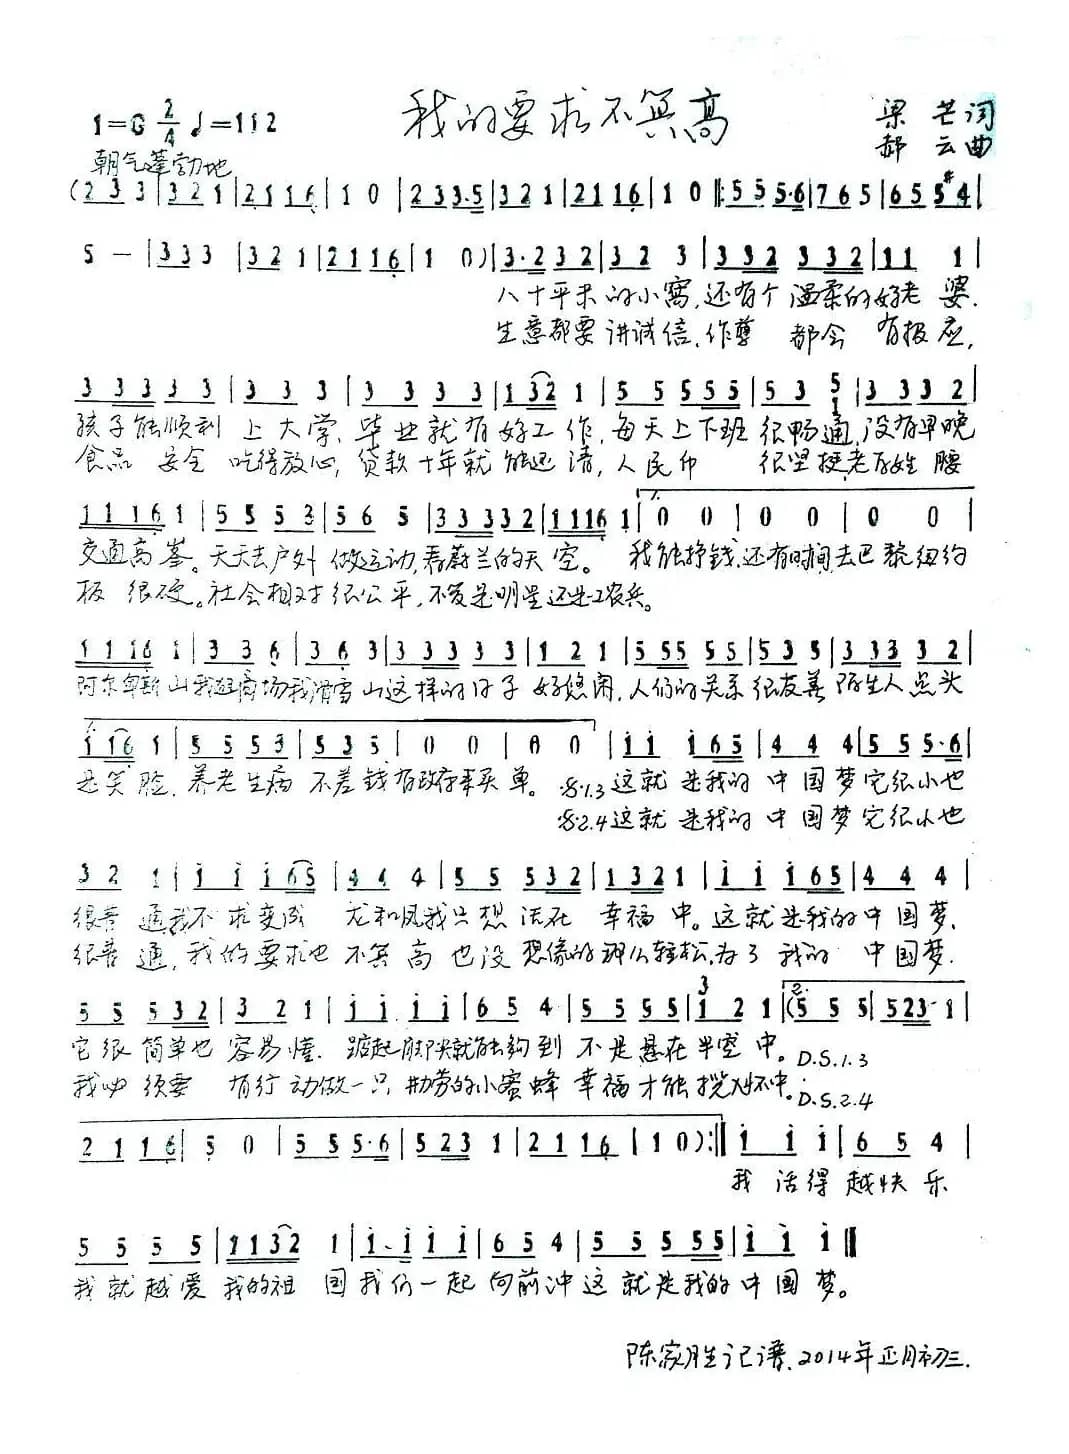 我的要求不算高
1=G 2/4 ♩=112
梁芒词
郝云曲
朝气蓬勃地
(2 3 3 | 3 2 1 | 2 1 1 6 | 1 0 | 2 3 3·5 | 3 2 1 | 2 1 1 6 | 1 0 |: 5 5 5·6 | 7 6 5 | 6 5 5 #4 |
5 — | 3 3 3 | 3 2 1 | 2 1 1 6 | 1 0) | 3·2 3 2 | 3 2 3 | 3 3 2 3 3 2 | 1 1 1 |
八十平米的小窝,还有个温柔的好老婆.
生意都要讲诚信,作孽都会有报应,
3 3 3 3 3 | 3 3 3 | 3 3 3 3 3 | 1 3 2 1 | 5 5 5 5 5 | 5 3 5 | 3 3 3 3 2 |
孩子能顺利上大学、毕业就有好工作,每天上下班很畅通,没有早晚
食品安全吃得放心,贷款十年就能还清,人民币很坚挺,老百姓腰
1 1 1 6 1 | 5 5 5 3 | 5 6 5 | 3 3 3 3 2 | 1 1 1 6 1 | 0 0 | 0 0 | 0 0 |
交通高峯。天天去户外做运动,看蔚兰的天空。我能挣钱,还有时间,去巴黎纽约
板很硬。社会相对很公平,不管是明星还是工农兵。
1 1 1 6 1 | 3 3 6 | 3 6 3 | 3 3 3 3 3 | 1 2 1 | 5 5 5 5 5 | 5 3 5 | 3 3 3 3 2 |
阿尔卑斯山我逛商场我滑雪山这样的日子好悠闲,人们的关系很友善陌生人点头
1 1 6 1 | 5 5 5 3 | 5 3 5 | 0 0 | 0 0 | 1 1 1 6 5 | 4 4 4 | 5 5 5·6 |
是笑脸.养老生病不差钱有政府来买单。𝄋1.3这就是我的中国梦它很小也
𝄋2.4这就是我的中国梦它很小也
3 2 1 | 1 1 1 6 5 | 4 4 4 | 5 5 5 3 2 | 1 3 2 1 | 1 1 1 6 5 | 4 4 4 |
很普通我不求变成龙和凤我只想活在幸福中。这就是我的中国梦,
很普通,我的要求也不算高也没想像的那么轻松,为了我的中国梦.
5 5 5 3 2 | 3 2 1 | 1 1 1 1 | 6 5 4 | 5 5 5 5 | 1 2 1 | (5 5 5 | 5 2 3·1 |
它很简单也容易懂.踮起脚尖就能够到不是悬在半空中。D.S.1.3
我必须要有行动做一只勤劳的小蜜蜂幸福才能揽怀中.D.S.2.4
2 1 1 6 | 5 0 | 5 5 5·6 | 5 2 3 1 | 2 1 1 6 | 1 0) :| 1 1 1 | 6 5 4 |
我活得越快乐
5 5 5 5 | 1 1 3 2 1 | 1·1 1 1 | 6 5 4 | 5 5 5 5 5 | 1 1 1 ‖
我就越爱我的祖国我们一起向前冲这就是我的中国梦。
陈家胜记谱.2014年正月初三.